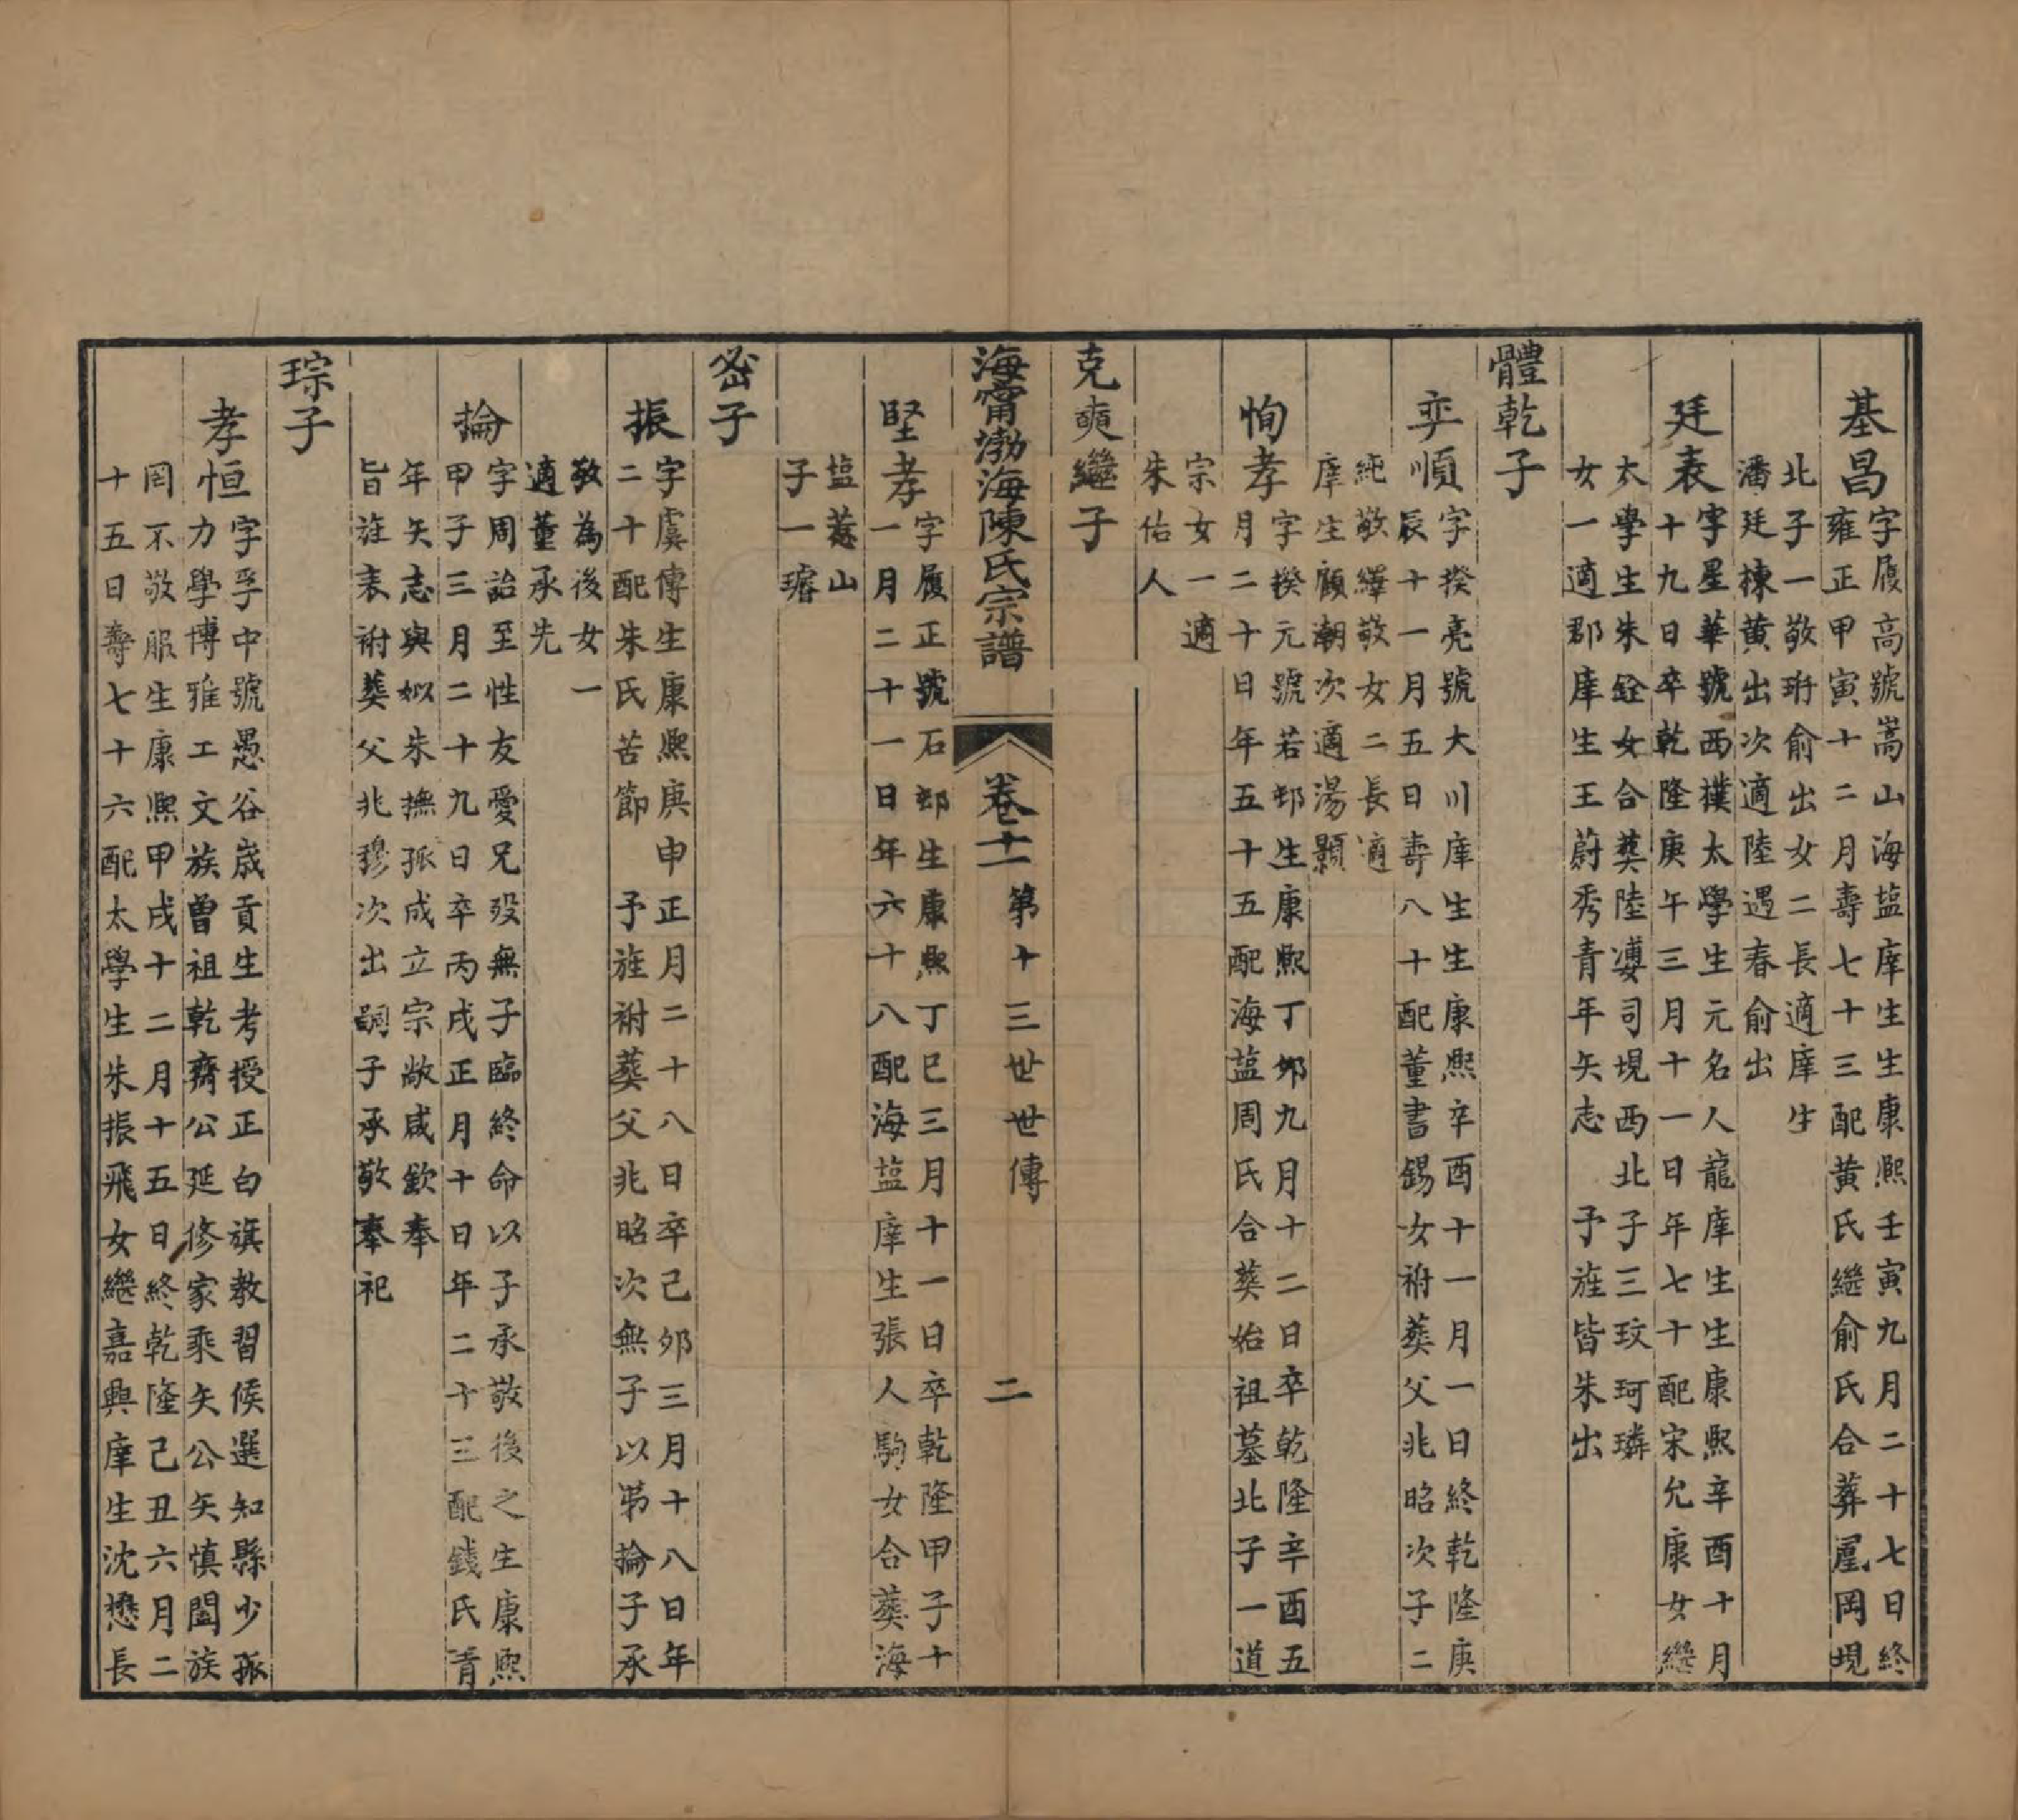 基昌字履高號嵩山海盐庠生生康熙壬寅九月二十七日終
雍正甲寅十二月壽七十三配黄氏繼俞氏合葬鳯岡堍
北子一敬珩俞出女二長適庠生
潘廷棟黄出次適陸遇春俞出
廷表字星華號西樸太學生元名人龍庠生生康熙辛酉十月
十九日卒乾隆庚午三月十一日年七十配宋允康女繼
太學生朱銓女合葬陸漊司堍西北子三玟珂璘
女一適郡庠生王蔚秀青年矢志 予旌皆朱出
體乾子
弈順字揆亮號大川庠生生康熙辛酉十一月一日終乾隆庚
辰十一月五日壽八十配董書錫女祔葬父兆昭次子二
純敬繹敬女二長適
庠生顧潮次適湯顥
恂孝字揆元號若邨生康熙丁夘九月十二日卒乾隆辛酉五
月二十日年五十五配海盐周氏合葬始祖墓北子一道
宗女一適
朱佑人
克奭繼子
海甯渤海陳氏宗譜 卷十一 第十三世世傳 二
堅孝字履正號石邨生康熙丁巳三月十一日卒乾隆甲子十
一月二十一日年六十八配海盐庠生張人駒女合葬海
盐葱山
子一璿
宓子
振字虞傳生康熙庚申正月二十八日卒己夘三月十八日年
二十配朱氏苦節 予旌祔葬父兆昭次無子以弟掄子承
敬為後女一
適董承先
掄字周詒至性友愛兄歿無子臨終命以子承敬後之生康熙
甲子三月二十九日卒丙戌正月十日年二十三配錢氏青
年矢志與姒朱撫孤成立宗敞咸欽奉
旨旌表祔葬父兆穆次出嗣子承敬奉祀
琮子
孝恒字孚中號愚谷歲貢生考授正白旗教習候選知縣少孤
力學博雅工文族曾祖乾齋公延修家乘矢公矢慎闔族
罔不敬服生康熙甲戌十二月十五日終乾隆己丑六月二
十五日壽七十六配太學生朱振飛女繼嘉興庠生沈懋長